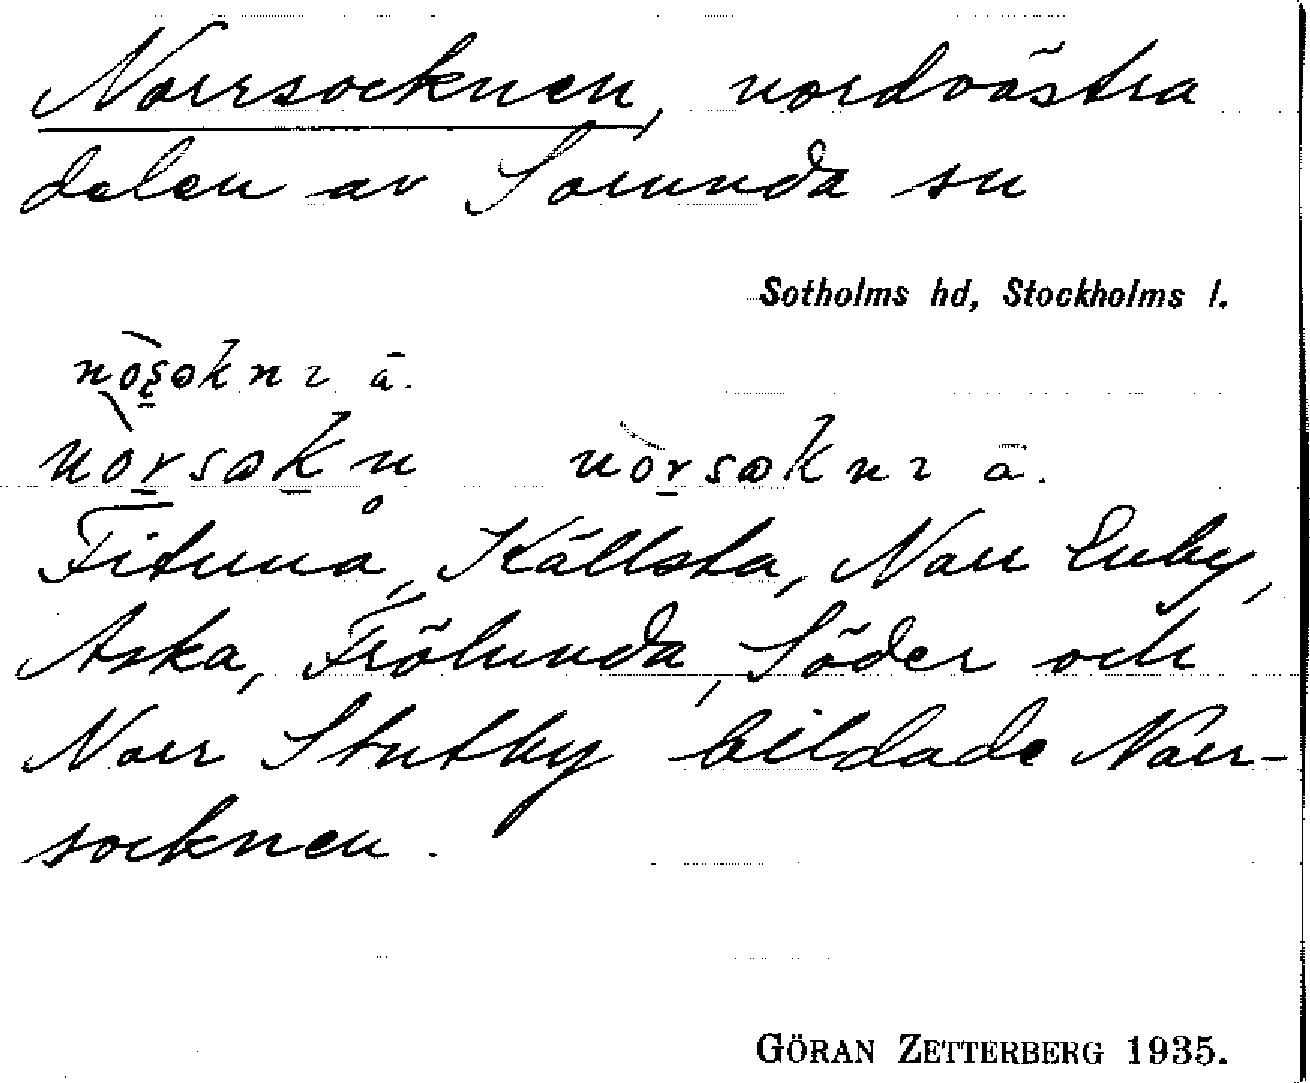 Norrsocknen, nordvästra
delen av Sorunda sn
Sotholms hd, Stockholms l.
Fituna, Källsta, Norr Enby,
Aska, Frölunda, Söder och
Norr Stutby bildade Norr-
socknen.
GÖRAN ZETTERBERG 1935.